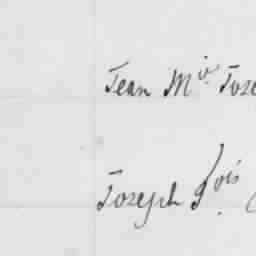 Jean M.ie Jose
Joseph f.ois